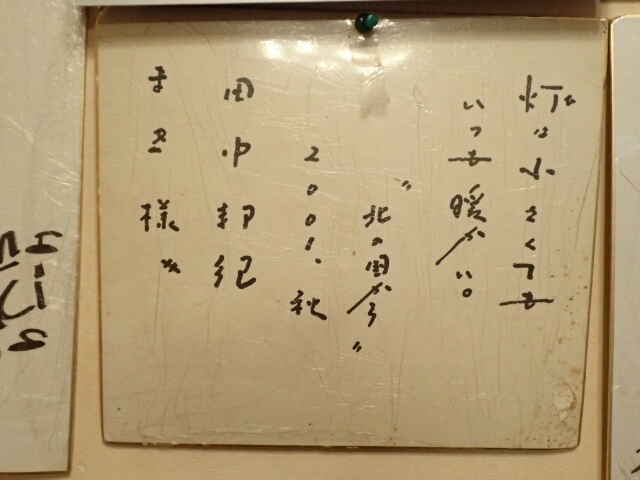 灯は小さくても
いつも暖かい。
"北の国から"
2001.秋
田中邦紀
様